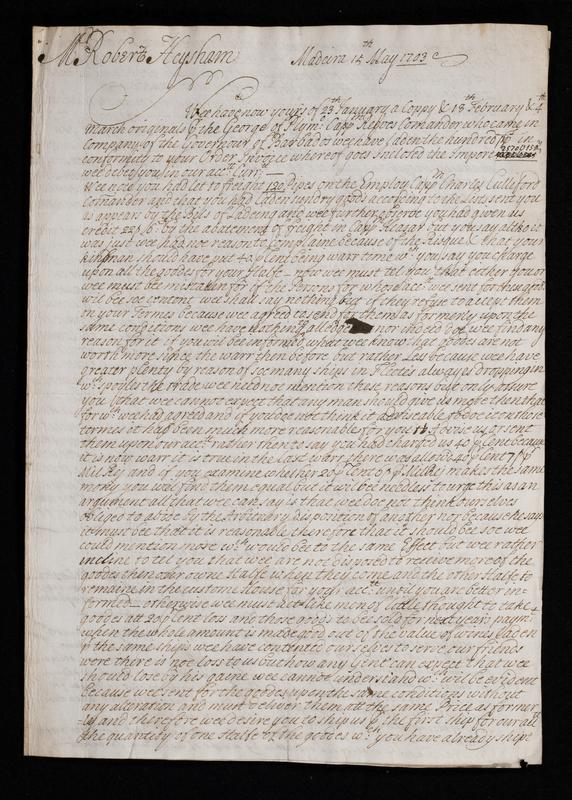 Mr Robert Heysham Madeira 14th May 1703
Wee have now yours of 23th January a Coppy & 18th February & 4th
march originals p the George of Plymo Capp Comander who came in
Company of the Governour of Barbados wee have laden the hundred pps in
conformity to your Order Invoyce whereof goes inclosed the Import
wee debeyou in our acctt Curr:
Wee note you had let to freight 130 Pipes on the Employ Capp Charles Culliford
Comander and that you had laden sundry goods according to the Lists sent you
as appears by the Bills of Ladeing and wee further observe you had given us
credit by the abatement of freight in Capp but you say altho it
was just wee had no reason to Complaine because of the Risque & that your
kinsman should have put 40 p Cent being warr time wch you say you charge
upon all the goods for your halfe - now wee must tel you that either you or
wee must bee mistaken for if the Persons for whose acctt wee sent for the goods
will bee soe content wee shall say nothing but if they refuse to accept them
on your Termes because wee agreed to send for them as formerly upon the
same conditions wee have nor indeed doe wee find any
reason for it if you will bee informed what wee know that goods are not
worth more since the warr then before but rather Less because wee have
greater plenty by reason of soe many ships in Flottes always dropping in
wch spoiles the trade wee need not mention these reasons but only assure
you that wee cannot expect that any man should give us more then that
for wch wee had agreed and if you doe not think it adviseable to doe it on those
termes it had been much more reasonable for you to advise us or sent
them upon our acctt rather then to say you had charged us 40 p Cent because
it is now warr it is true in the last warr there was allowed 40 p Cent 7 pp
Mill Rs and if you examine whether 20 p Cent & Mill Rs makes the same
mony you will find them equal but it will bee needless to urge this as an
argument all that wee can say is that wee doe not think ourselves
obliged to abide by the Arbitrary disposition of another nor because he says
it must bee that it is reasonable therefore that it should bee soe wee
could mention more wch would bee to the same Effect but wee rather
incline to tel you that wee are not disposed to receive more of the
goods then our owne halfe when they come and the other halfe to
remaine in the custome House for your acctt untill you are better in=
formed - otherwise wee must bee like men of little thought to take
goods at 20 p Cent loss and those goods to bee sold for next years paymt
when the whole amount is made good out of the value of wines laden
p the same ships wee have contented our selves to serve our friends
were there is not loss to us but how any Gent can expect that wee
should lose by his gaine wee cannot understand wch will be evident
because wee sent for the goods upon the same conditions without
any alteration and must deliver them att the same Price as former=
ly and therefore wee desire you to ship us p the first ship for our acctt
the quantity of one halfe to the goods wch you have already shipt